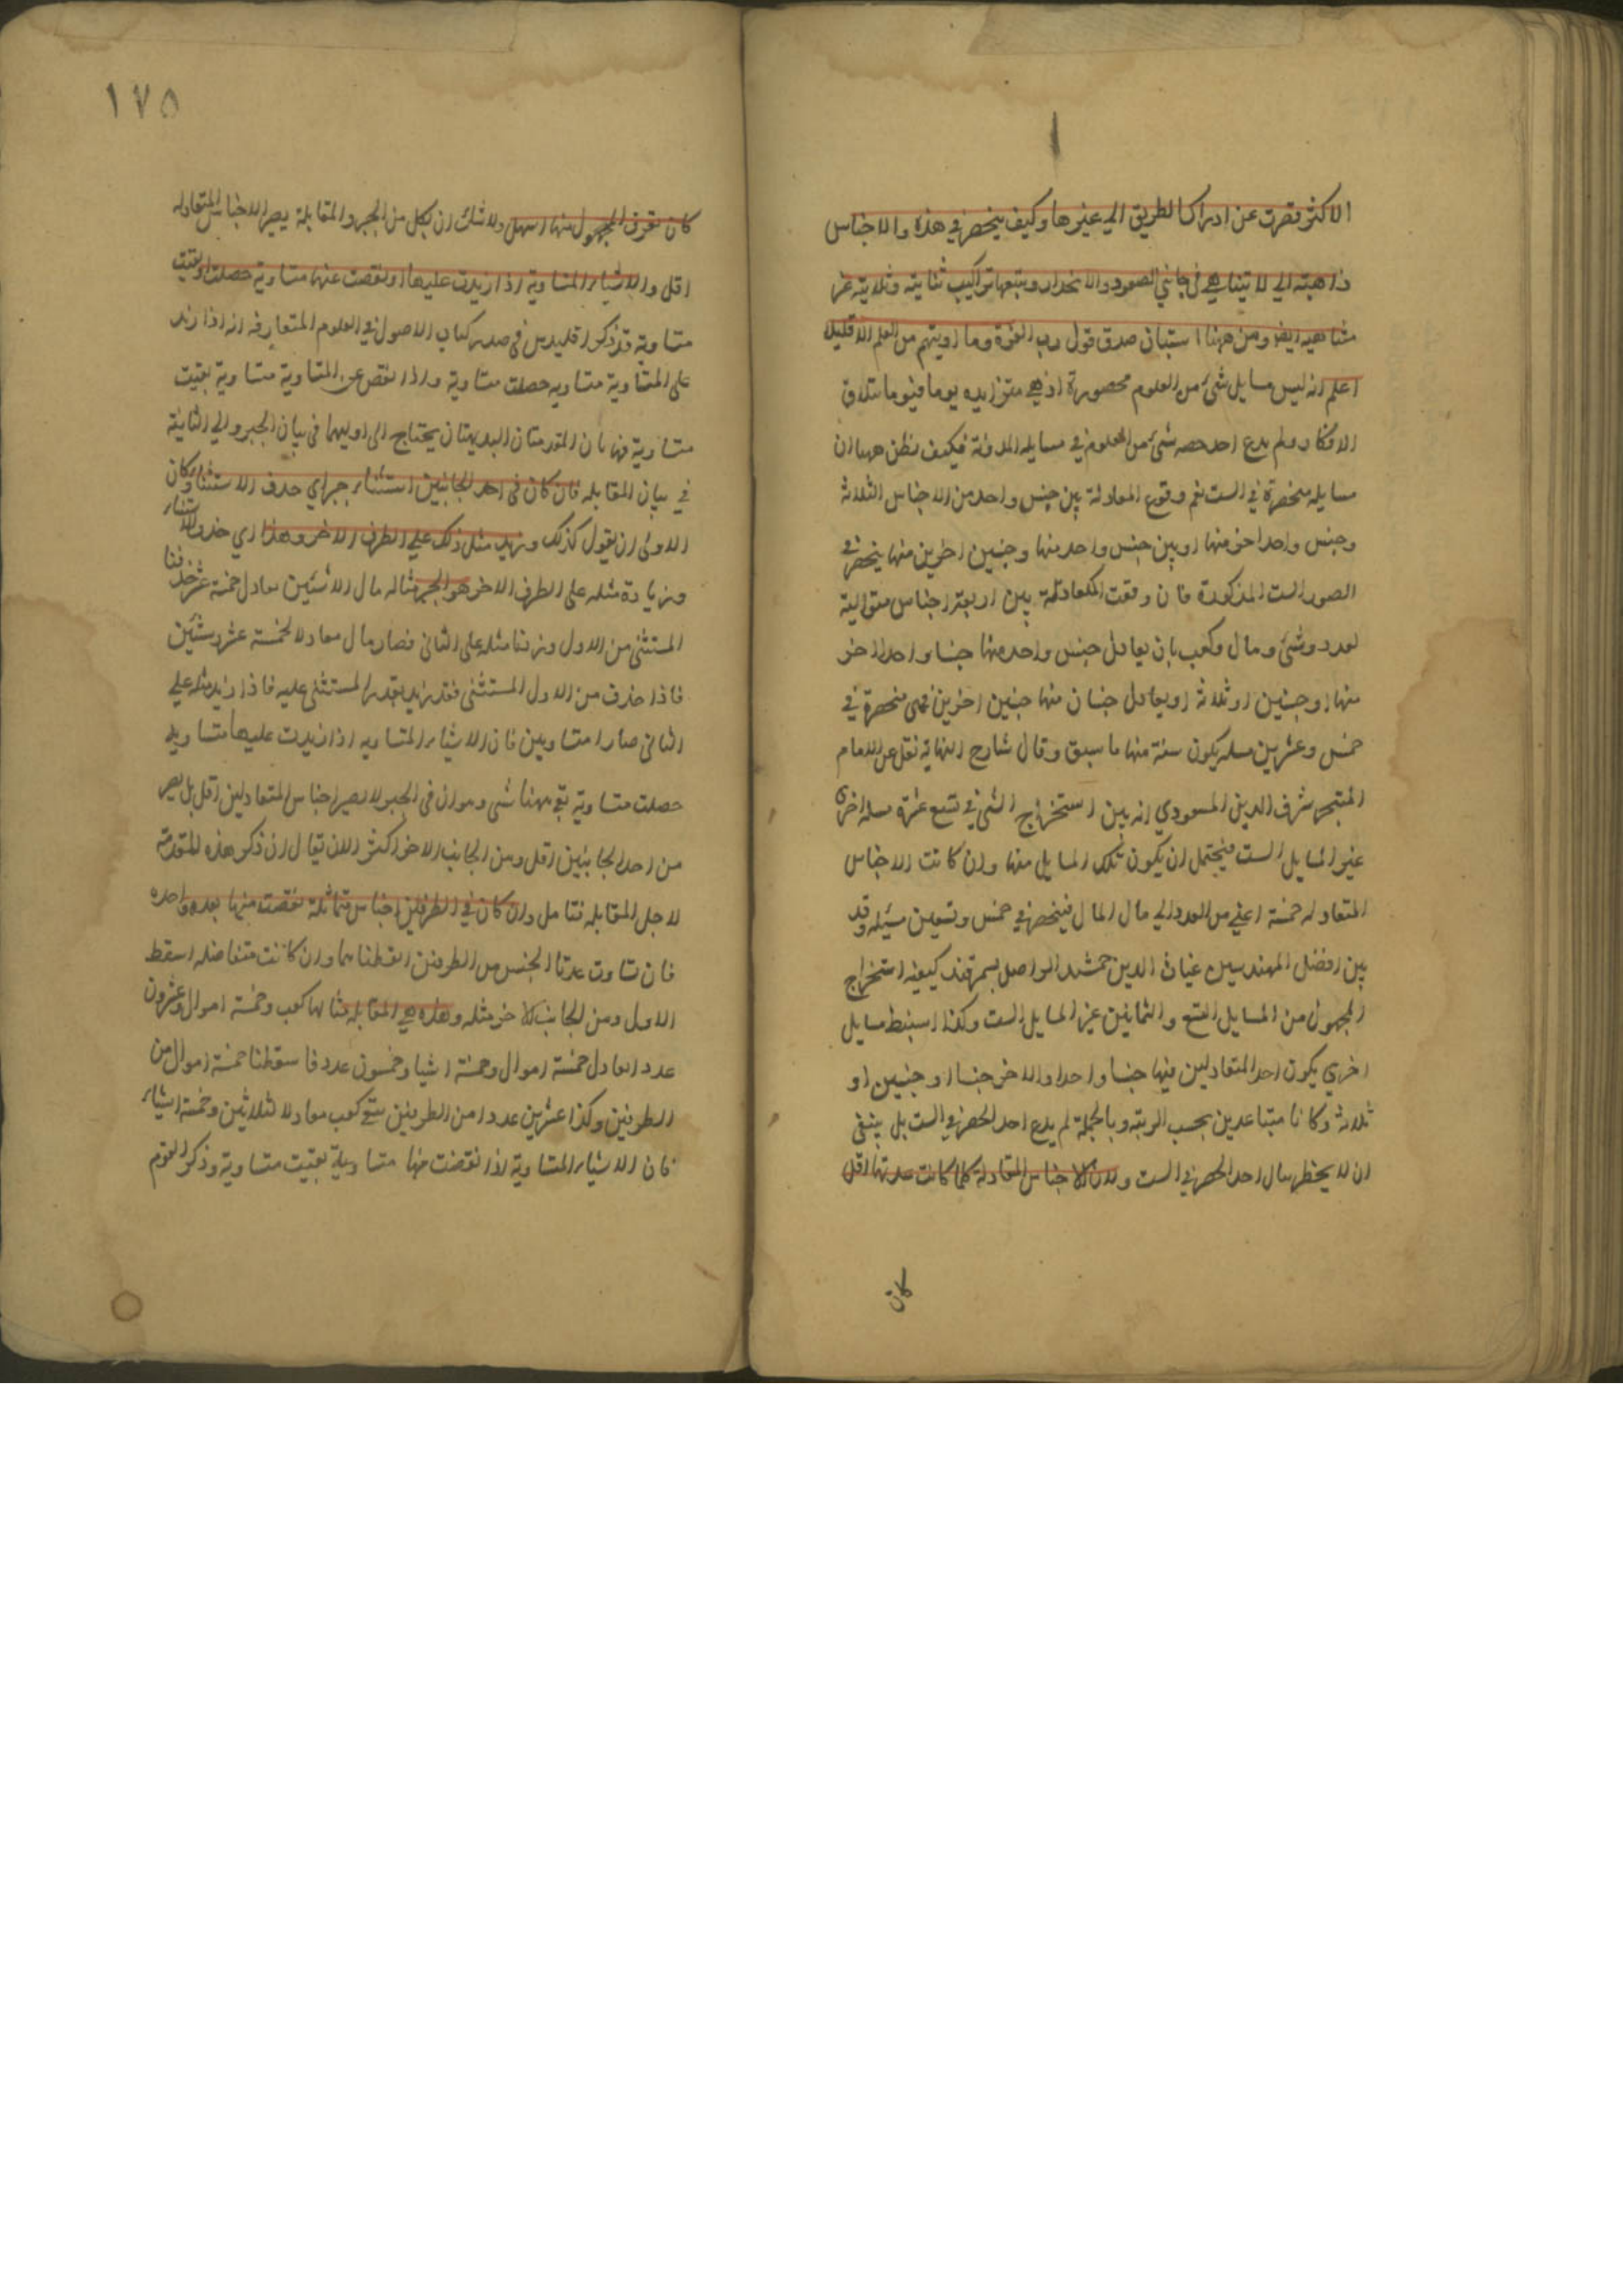 الاكثر فقصرت عن ادراك الطريق الي غيرها وكيف ينحصر في هذه والاجناس
ذاهبة الي لا يتناهي في جانبي الصعود والانحدار ويتبعها تراكيب ثنائية وثلاثية غير
متناهيه ايضا ومن ههنا استبان صدق قول رب العزة وما اوتيتم من العلم الا قليلا
اعلم انه ليس مسايل شئ من العلوم محصورة اذ هي متزايده يوما فيوما بتلاحق
الافكار ولم يدع احد حصر شئ من العلوم في مسايله المدونة فكيف نظن ههنا ان
مسايله منحصرة في الست نعم وقوع المعادلة بين جنس واحد من الاجناس الثلاثة
وجنس واحد اخر منها او بين جنس واحد منها وجنسين اخرين منها ينحصر في
الصور الست المذكورة فان وقعت المعادلة بين اربعة اجناس متوالية
لعدد وشئ ومال وكعب بان يعادل جنس واحد منها جنسا واحدا اخر
منها او جنسين او ثلاثة او يعادل جنسان منها جنسين اخرين فهي منحصرة في
خمس وعشرين مسله يكون ستة منها ما سبق وقال شارح النهاية نقل عن الامام
المتبحر شرف الدين المسعودي انه بين استخراج الشئ في تسع عشرة مسله اخرى
غير المسايل الست فيحتمل ان يكون تلك المسايل منها وان كانت الاجناس
المتعادله خمسة اعني من العدد الي مال المال فينحصر في خمس وتسعين مسئله وقد
بين افضل المهندسين غياث الدين جمشيد الواصل بسمرقند كيفية استخراج
المجهول من المسايل التسع والثمانين غير المسايل الست وكذا استنبط مسايل
اخري يكون احد المتعادلين فيها جنسا واحدا والاخر جنسا او جنسين او
ثلاثة وكانا متباعدين بحسب الرتبة وبالجملة لم يدع احد الحصر في الست بل ينبغي
ان لا يخطر ببال احد الحصر في الست ولان الاجناس المتعادلة كلما كانت عدتها اقل
كان
١٧٥
كان تعرف المجهول منها اسهل ولا شك ان بكل من الجبر والمقابلة يصير الاجناس المتعادله
اقل والاشياء المتساوية اذا زيدت عليها او نقصت عنها متساوية حصلت او بقيت
متساوية قد ذكر اقليدس في صدر كتاب الاصول في العلوم المتعارفه انه اذا زيد
على المتساوية متساويه حصلت متساوية واذا نقص عن المتساوية متساوية بقيت
متساوية فهاتان المقدمتان البديهتان يحتاج الى اوليهما في بيان الجبر والي الثانية
في بيان المقابله فان كان في احد الجانبين استثناء جبر اي حذف الاستثناء وكان
الاولى ان يقول كذلك ويزيد مثل ذلك علي الطرف الاخر وهذا اي حذف الاستثناء
وزيادة مثله على الطرف الاخر هو الجبر مثاله مال الا شيئين يعادل خمسة عشر حذفنا
المستثنى من الاول وزدنا مثله على الثاني فصار مال معادلا لخمسة عشر وشيئين
فاذا حذف من الاول المستثنى فقد زيد بقدر المستثنى عليه فاذا زيد مثله علي
الثاني صارا متساويين فان الاشياء المتساويه اذا زيدت عليها متساوية
حصلت متساوية بقي ههنا شئ وهو ان في الجبر لا يصير اجناس المتعادلين اقل بل يصير
من احد الجانبين اقل ومن الجانب الاخر اكثر الا ان يقال ان ذكر هذه المقدمة
لاجل المقابله فتامل وان كان في الطرفين اجناس متماثلة نقصت منها بعده واحده
فان تساوت عدتا الجنس من الطرفين اسقطناهما وان كانت متفاضله اسقط
الاول ومن الجانب الاخر مثله وهذه هي المقابله مثالها كعب وخمسة اموال وعشرون
عددا يعادل خمسة اموال وخمسة اشيا وخمسون عددا فاسقطنا خمسة اموال من
الطرفين وكذا عشرين عددا من الطرفين بقي كعب معادلا لثلاثين وخمسة اشياء
فان الاشياء المتساوية اذا نقصت منها متساوية بقيت متساوية وذكر القوم